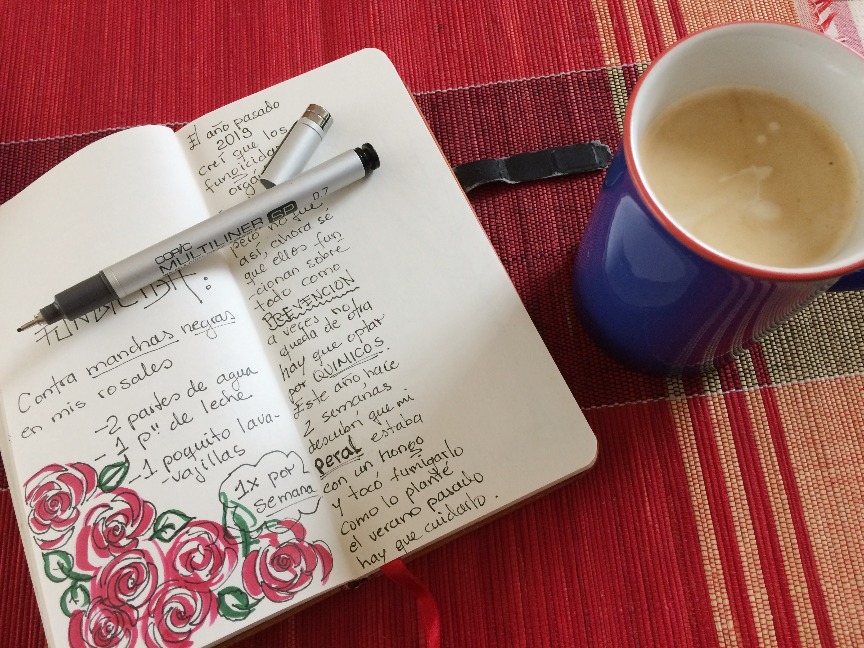 FUNGICIDA:
Contra manchas negras
en mis rosales
-2 partes de agua
-1 p" de leche
-1 poquito lava-
-vajillas
1x por
semana
El año pasado
2019
creí que los
fungicidas
orgá
pero no fue
así, ahora sé
que ellos fun
cionan sobre
todo como
PREVENCIÓN
a veces no
queda de otra
hay que optar
por QUÍMICOS.
Este año hace
2 semanas
descubrí que mi
peral estaba
con un hongo
y tocó fumigarlo
como lo planté
el verano pasado
hay que cuidarlo.
COPIC
MULTILINER SP
0.7